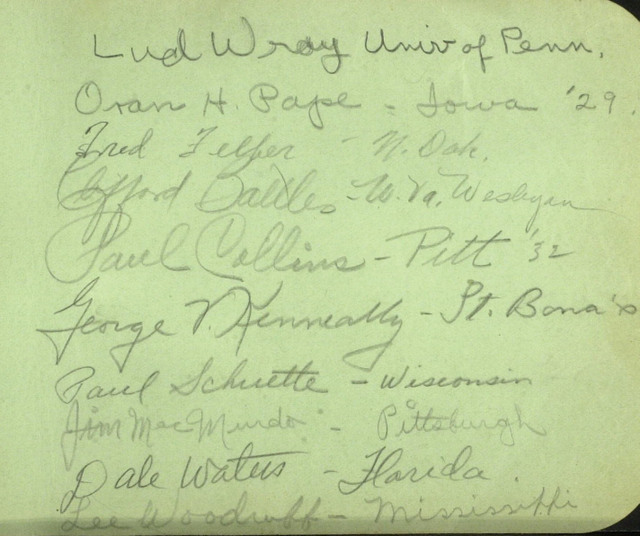 Lud Wray Univ of Penn.
Oran H. Pape - Iowa '29.
Fred Felber - N. Dak.
Clifford Battles - W. Va. Wesleyan
Paul Collins - Pitt '32
George V. Kenneally - St. Bona's
Paul Schuette - Wisconsin
Jim MacMurdo - Pittsburgh
Dale Waters - Florida
Lee Woodruff - Mississippi